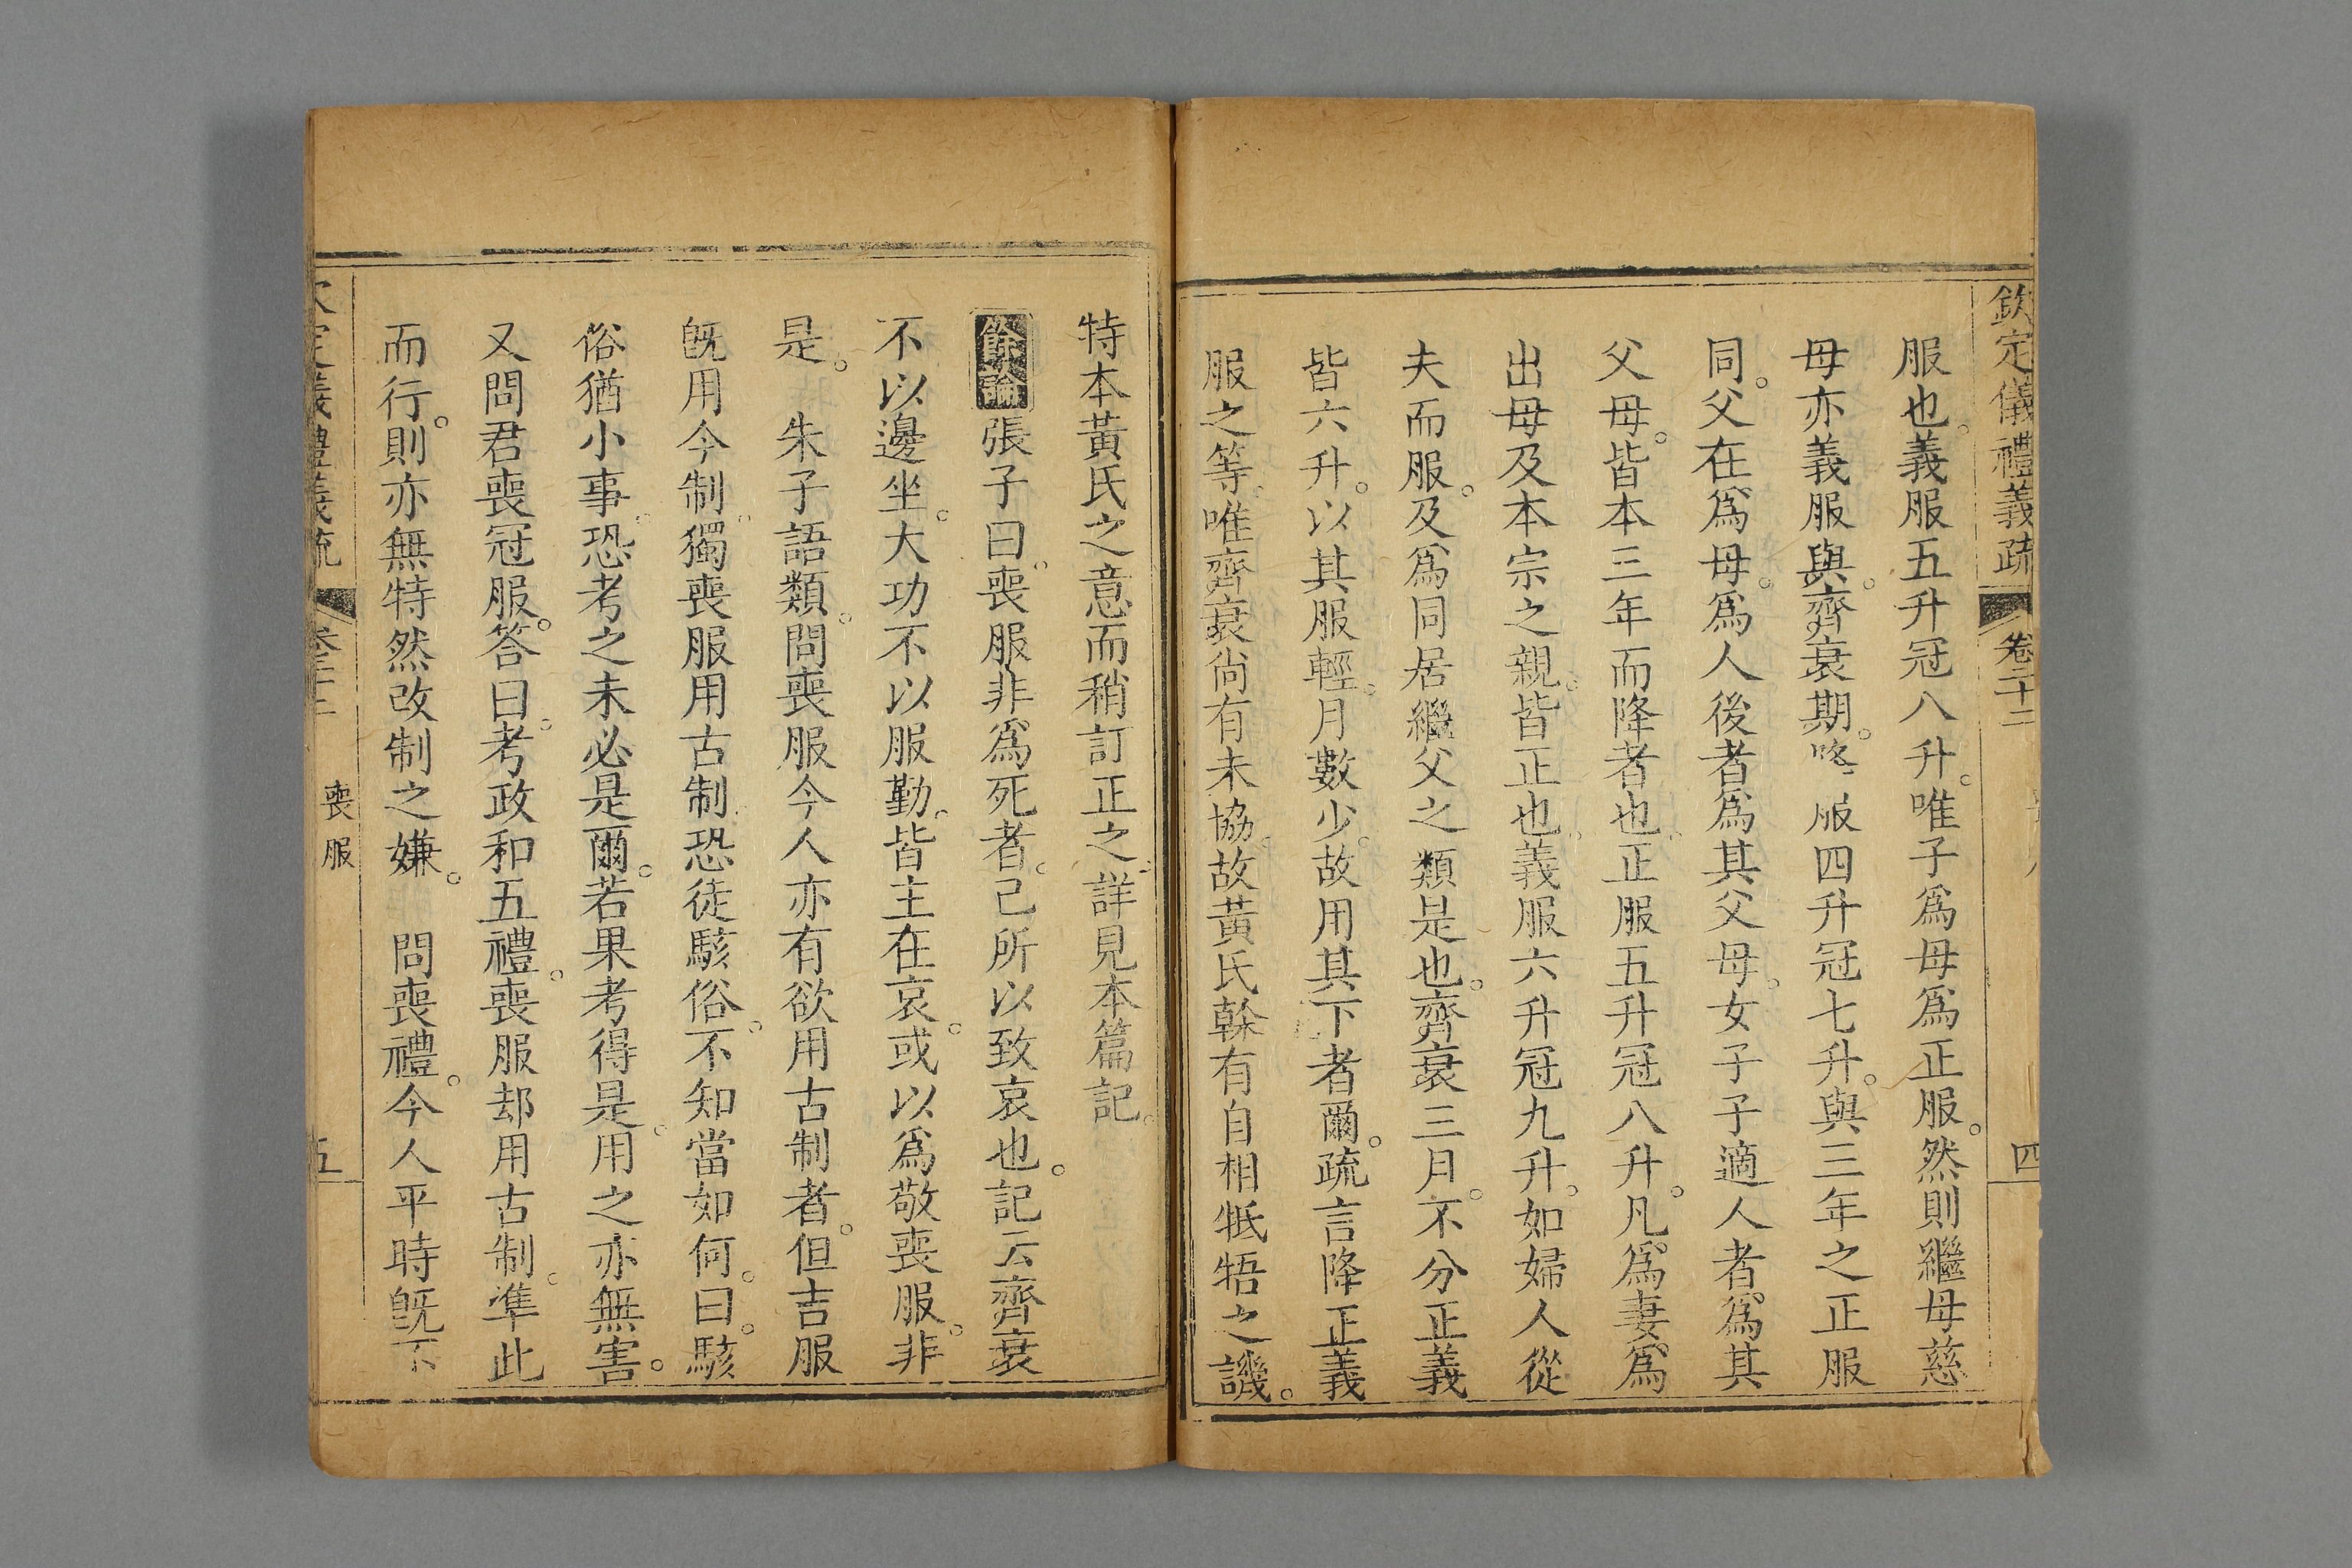 欽定儀禮義疏 卷二十二 四
服也。義服五升冠八升。唯子爲母爲正服。然則繼母慈
母亦義服與。齊衰期。服四升冠七升。與三年之正服
同。父在爲母。爲人後者爲其父母。女子子適人者。爲其
父母。皆本三年而降者也。正服五升冠八升。凡爲妻。爲
出母及本宗之親。皆正也。義服六升冠九升。如婦人從
夫而服。及爲同居繼父之類是也。齊衰三月。不分正義
皆六升。以其服輕。月數少。故用其下者爾。疏言降正義
服之等。唯齊衰尙有未協。故黃氏榦有自相牴牾之譏。
特本黃氏之意而稍訂正之。詳見本篇記。
餘論 張子曰。喪服非爲死者。己所以致哀也。記云齊衰
不以邊坐。大功不以服勤。皆主在哀。或以爲敬喪服。非
是。 朱子語類。問喪服今人亦有欲用古制者。但吉服
旣用今制。獨喪服用古制。恐徒駭俗。不知當如何。曰。駭
俗猶小事。恐考之未必是爾。若果考得是。用之亦無害。
又問君喪冠服。答曰。考政和五禮。喪服却用古制。準此
而行。則亦無特然改制之嫌。 問喪禮。今人平時旣不
定義禮義疏 喪服 五